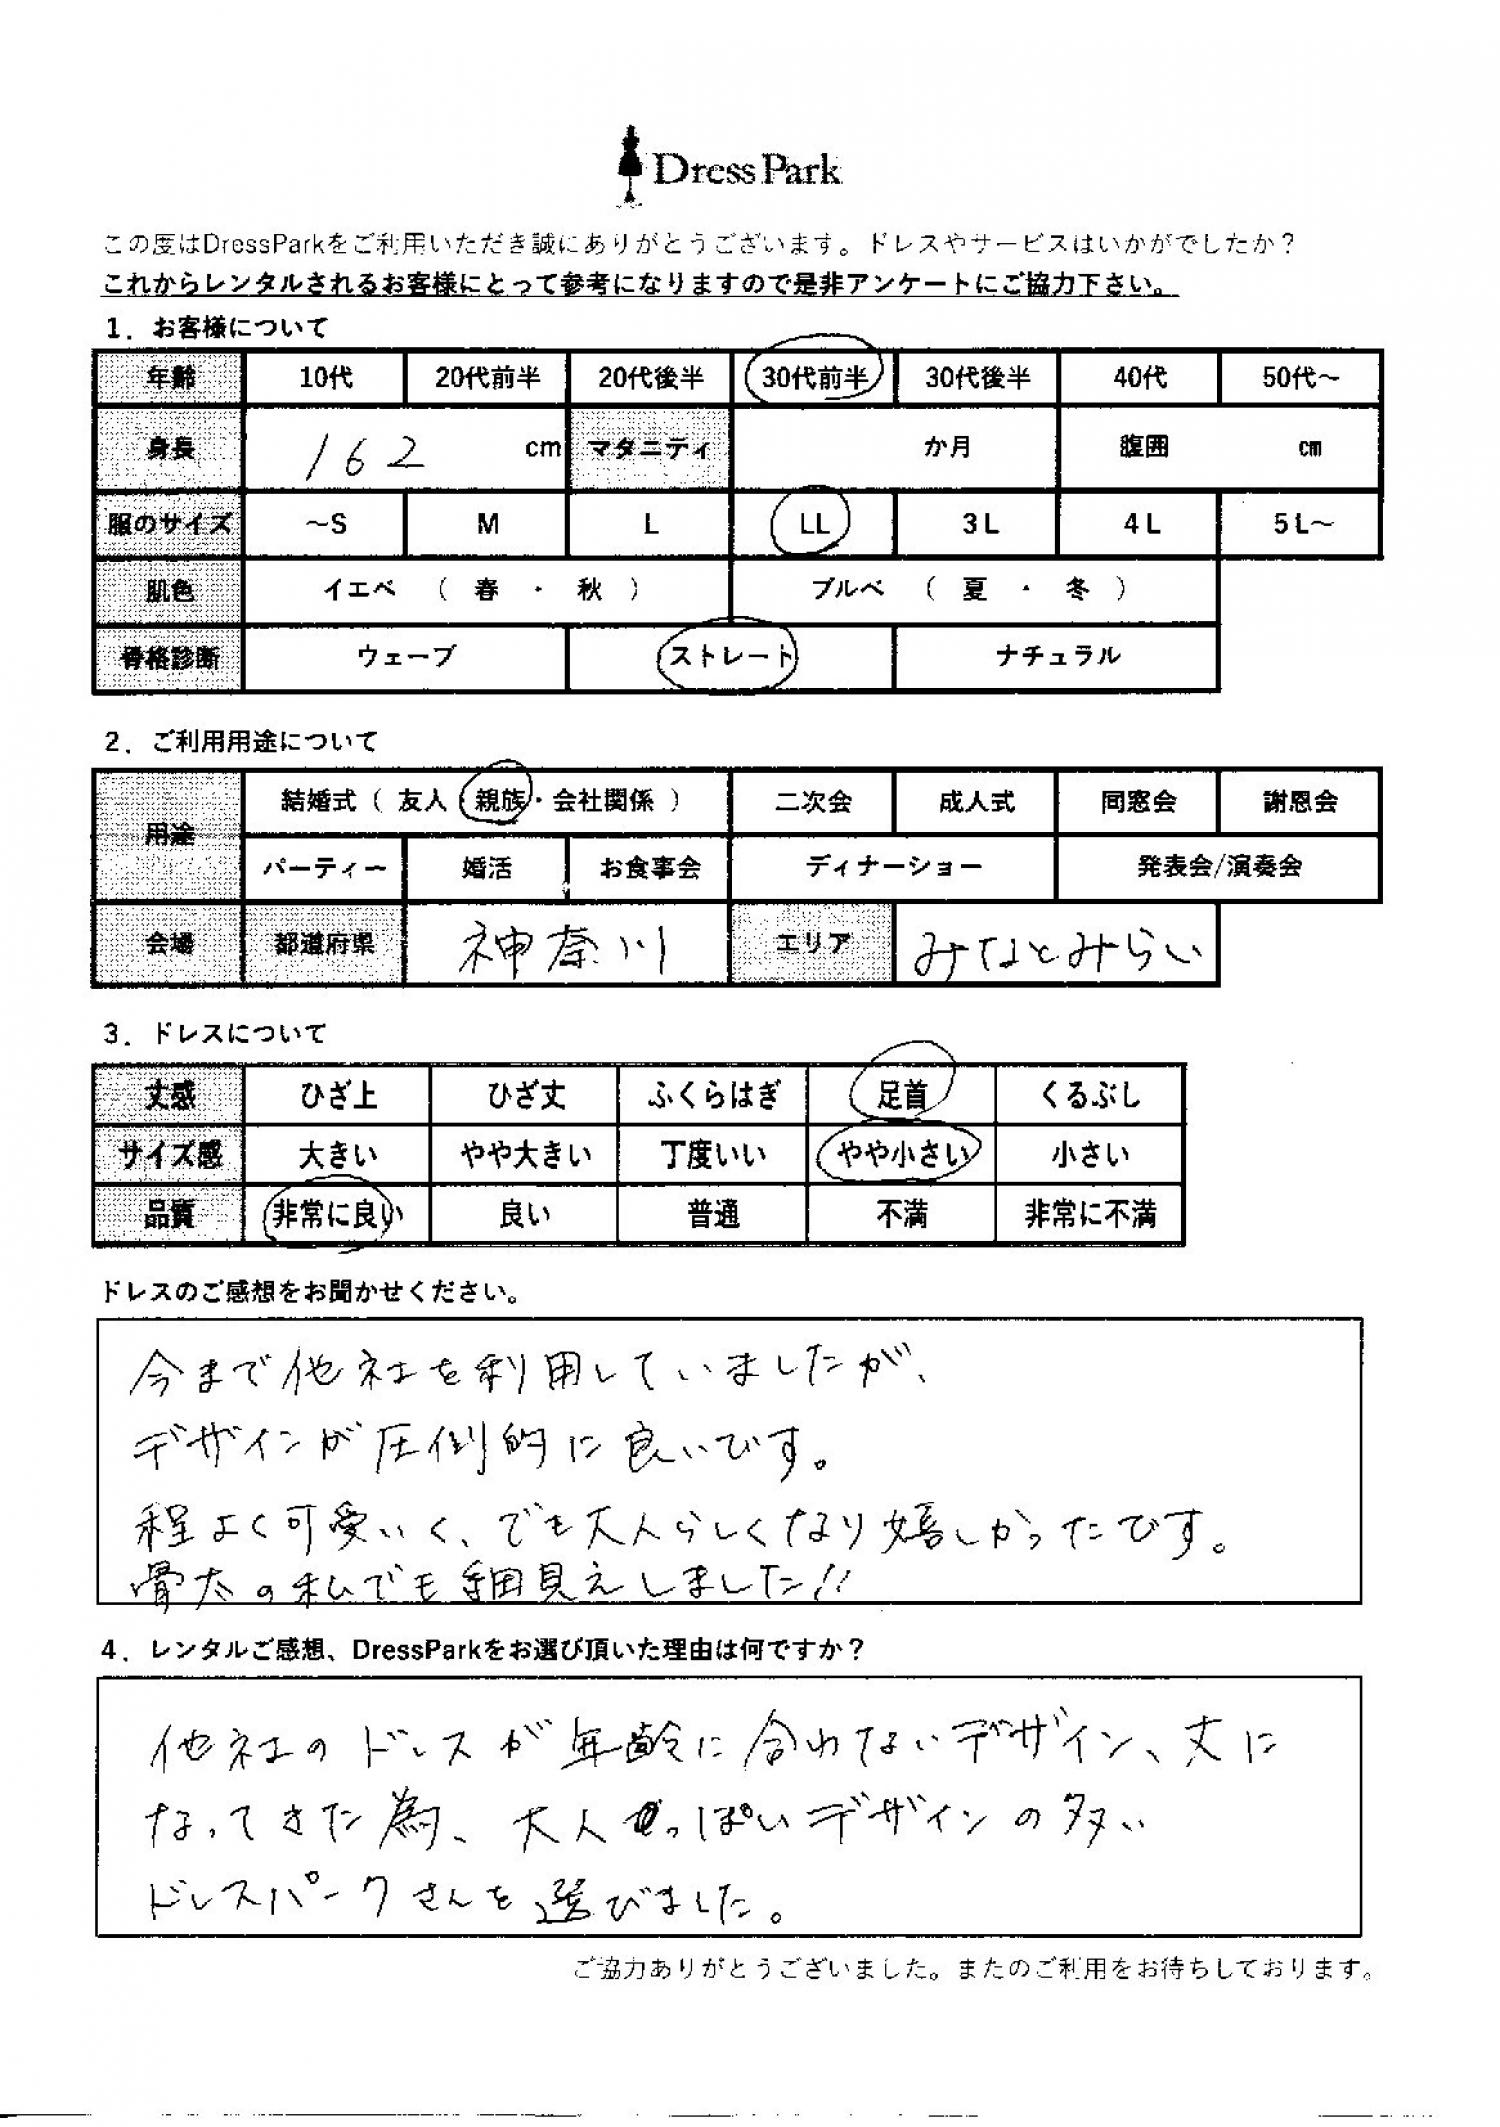 DressPark
この度はDressParkをご利用いただき誠にありがとうございます。ドレスやサービスはいかがでしたか?
これからレンタルされるお客様にとって参考になりますので是非アンケートにご協力下さい。
1. お客様について
年齢 10代 20代前半 20代後半 30代前半 30代後半 40代 50代~
身長 162 cm マタニティ か月 腹囲 cm
服のサイズ ~S M L LL 3L 4L 5L~
肌色 イエベ ( 春 ・ 秋 ) ブルベ ( 夏 ・ 冬 )
骨格診断 ウェーブ ストレート ナチュラル
2. ご利用用途について
用途 結婚式 ( 友人・親族・会社関係 ) 二次会 成人式 同窓会 謝恩会
パーティー 婚活 お食事会 ディナーショー 発表会/演奏会
会場 都道府県 神奈川 エリア みなとみらい
3. ドレスについて
丈感 ひざ上 ひざ丈 ふくらはぎ 足首 くるぶし
サイズ感 大きい やや大きい 丁度いい やや小さい 小さい
品質 非常に良い 良い 普通 不満 非常に不満
ドレスのご感想をお聞かせください。
今まで他社を利用していましたが、
デザインが圧倒的に良いです。
程よく可愛いく、でも大人らしくなり嬉しかったです。
骨太の私でも細見えしました!!
4. レンタルご感想、DressParkをお選び頂いた理由は何ですか?
他社のドレスが年齢に合わないデザイン、丈に
なってきた為、大人っぽいデザインの多い
ドレスパークさんを選びました。
ご協力ありがとうございました。またのご利用をお待ちしております。